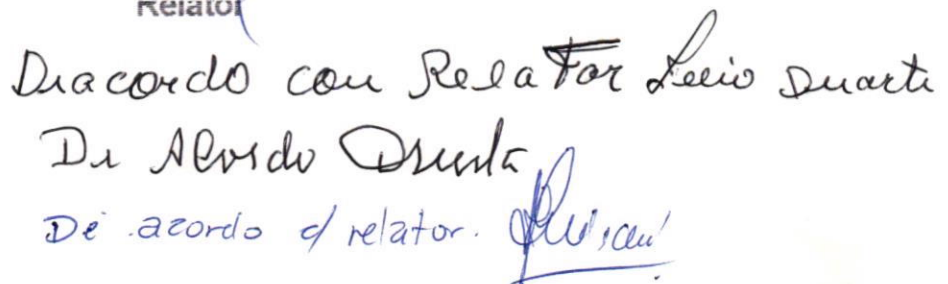 Relator
Diacordo com Relator Lucio Duarte
De Acordo
De acordo c/ relator.